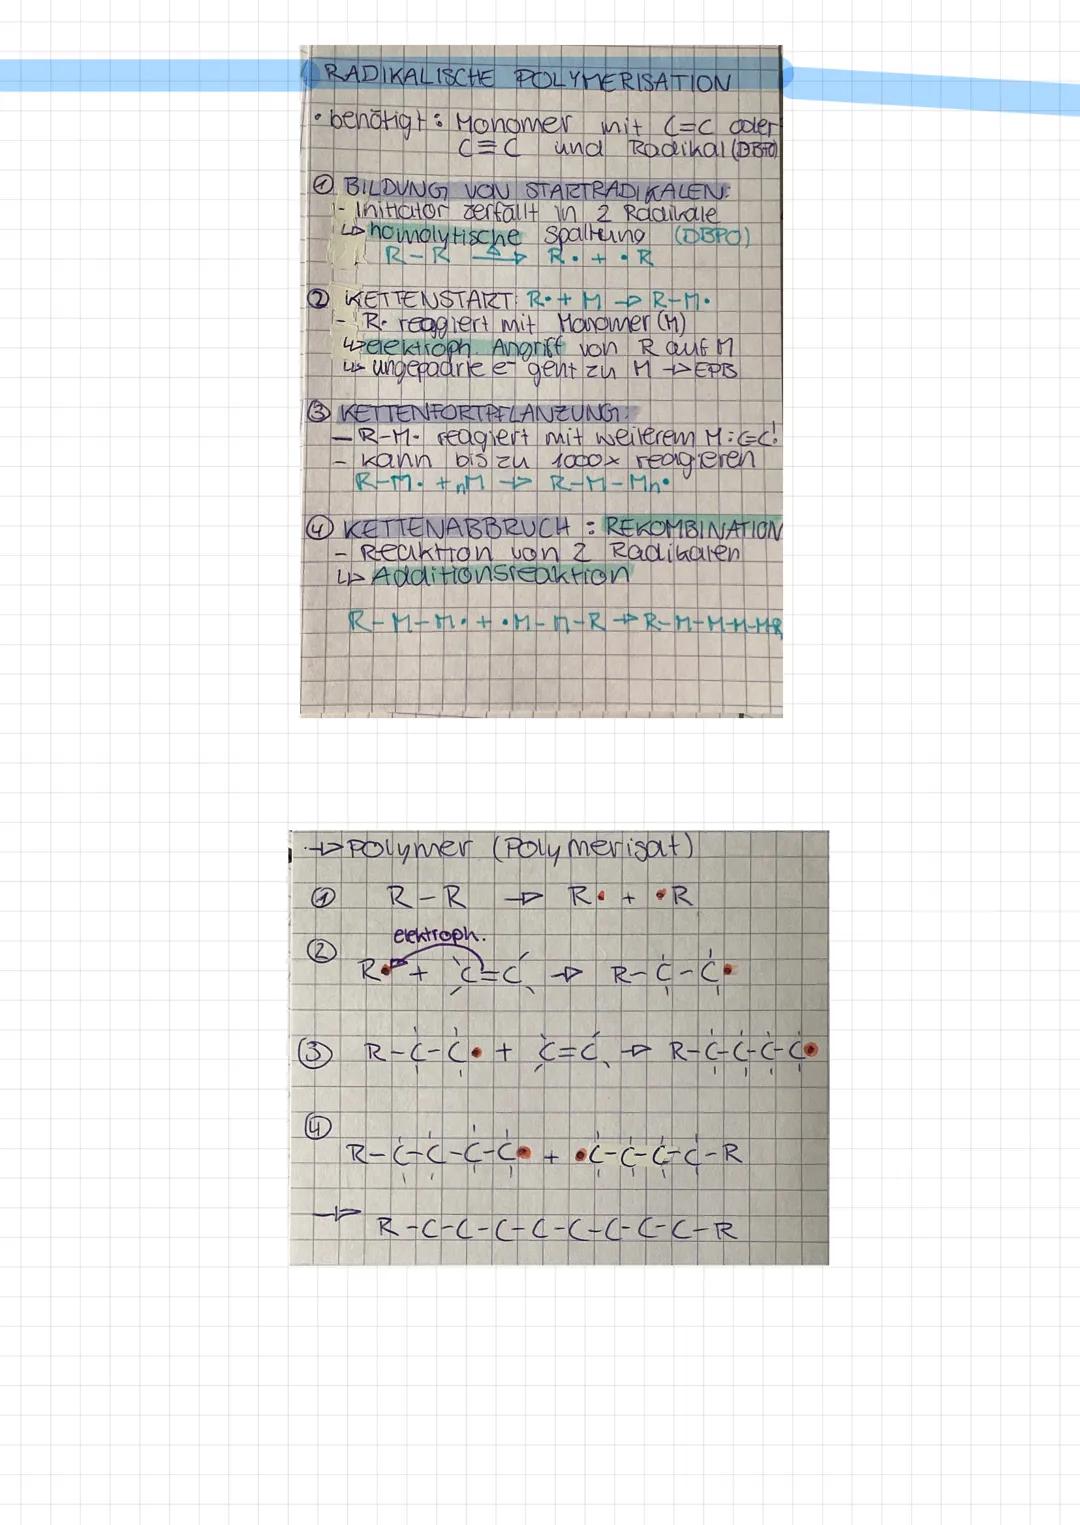 RADIKALISCHE POLYMERISATION
• benötigt: Monomer mit C=C oder
C≡C und Radikal (DBPO)
① BILDUNG VON STARTRADIKALEN:
- Initiator zerfällt in 2 Radikale
↳ homolytische Spaltung (DBPO)
R-R →^Δ R• + •R
② KETTENSTART: R• + M → R-M•
- R• reagiert mit Monomer (M)
↳ elektroph. Angriff von R auf M
↳ ungepaarte e⁻ geht zu M → EPB
③ KETTENFORTPFLANZUNG:
- R-M• reagiert mit weiterem M: C=C!
- kann bis zu 1000x reagieren
R-M• + nM → R-M-Mn•
④ KETTENABBRUCH: REKOMBINATION
- Reaktion von 2 Radikalen
↳ Additionsreaktion
R-M-M• + •M-M-R → R-M-M-M-MR
→ Polymer (Polymerisat)
① R-R → R• + •R
elektroph.
② R• + C=C → R-C-C•
③ R-C-C• + C=C → R-C-C-C-C•
④
R-C-C-C-C• + •C-C-C-C-R
→ R-C-C-C-C-C-C-C-C-R